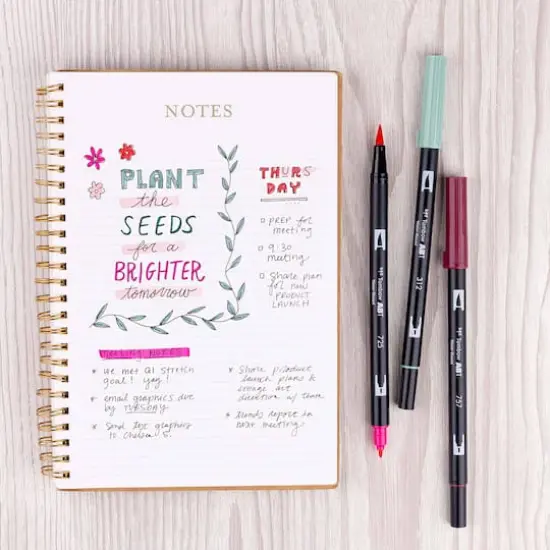 NOTES
PLANT
the
SEEDS
for a
BRIGHTER
tomorrow
THURS
DAY
PREP for
meeting
9:30
meeting
Share plan
for new
PRODUCT
LAUNCH
* we met Q1 stretch
goal! yay!
* email graphics due
by TUESDAY
* Send the graphics
to Chelsea S.
* Share product
launch plans &
art
direction w/ team
* report to
next meeting
Tombow ABT
725
Tombow ABT
312
Tombow ABT
757